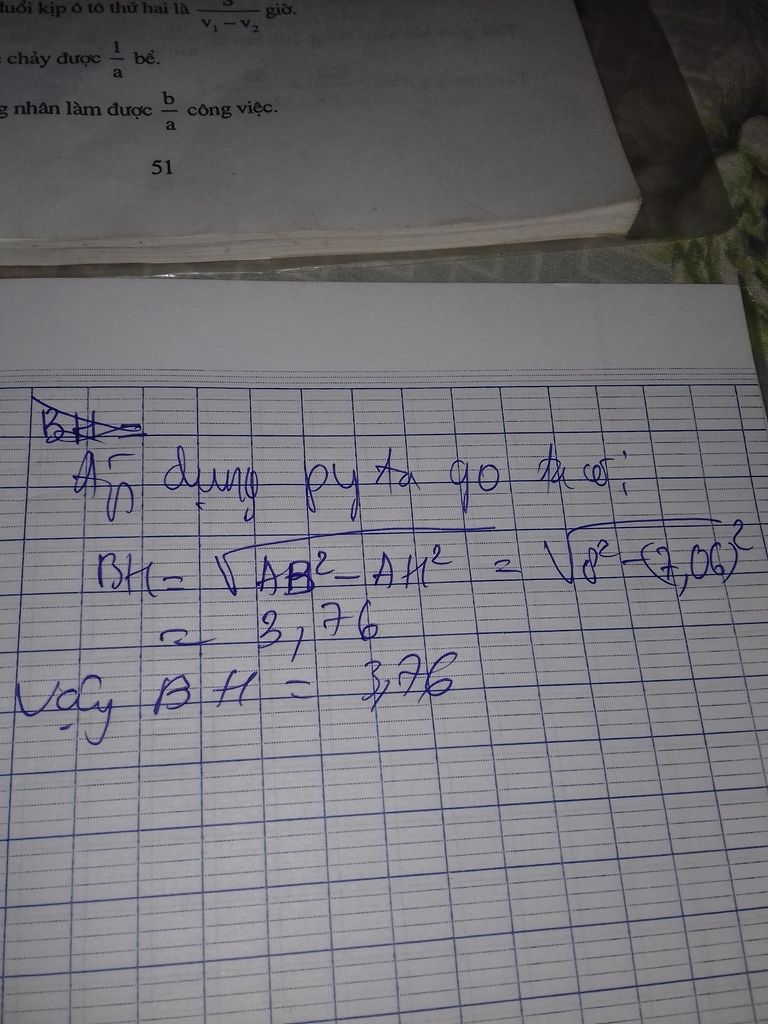 đuổi kịp ô tô thứ hai là S/(v₁ – v₂) giờ.
chảy được 1/a bể.
nhân làm được b/a công việc.
51
BH =
Áp dụng py ta go ta có:
BH = √(AB² – AH²) = √(8² – (7,06)²
≈ 3,76
Vậy BH = 3,76